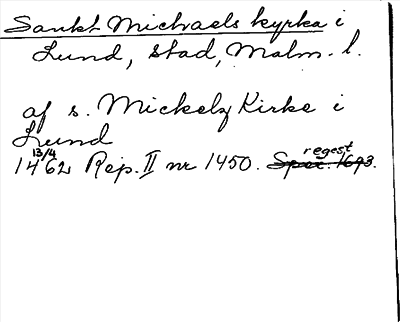 Sankt Michaels kyrka i
Lund, stad, Malm. l.
af s. Mickelz Kirke i
Lund
1462 13/4 Rep. II nr 1450. Spec. 1693. regest